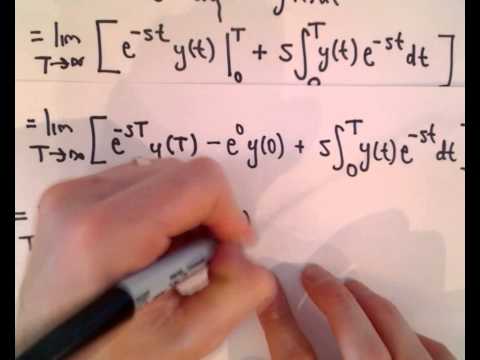 = lim T→∞ [ e^-st y(t) |_0^T + s∫_0^T y(t) e^-st dt ]
= lim T→∞ [ e^-sT y(T) - e^0 y(0) + s∫_0^T y(t) e^-st dt ]
=
T